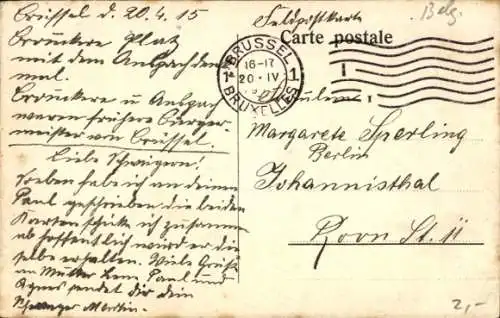 Brüssel d. 20.4.15
Brouckere Platz
mit dem Anspach denk
mal.
Brouckere u Anspach
waren frühere Bürger-
meister von Brüssel.
Liebe Schwägerin!
Soeben habe ich an deinen
Paul geschrieben die beiden
Karten schicke ich zusamm
ab hoffentlich wird er die
selbe erhalten. Viele Grüße
an Mutter Paul und
Agnes sendet dir dein
Schwager Martin.
Feldpostkarte
Belg.
Carte postale
BRUSSEL
1A 16-17 1
20 · IV
BRUXELLES
Fräulein
Margarete Sperling
Berlin
Johannisthal
Roon St. 11
2,-